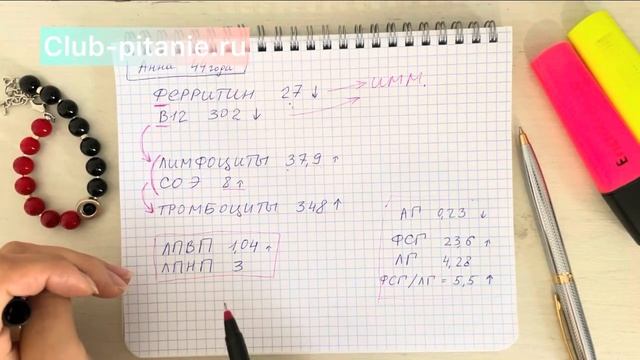 Club-pitanie.ru
Анна 44 года
ФЕРРИТИН 27 ↓ → ИММ.
В12 302 ↓
ЛИМФОЦИТЫ 37,9 ↑
СОЭ 8 ↑
ТРОМБОЦИТЫ 348 ↑
ЛПВП 1,04 ↑
ЛПНП 3
АГ 0,23 ↓
ФСГ 23,6 ↑
ЛГ 4,28
ФСГ/ЛГ = 5,5 ↑